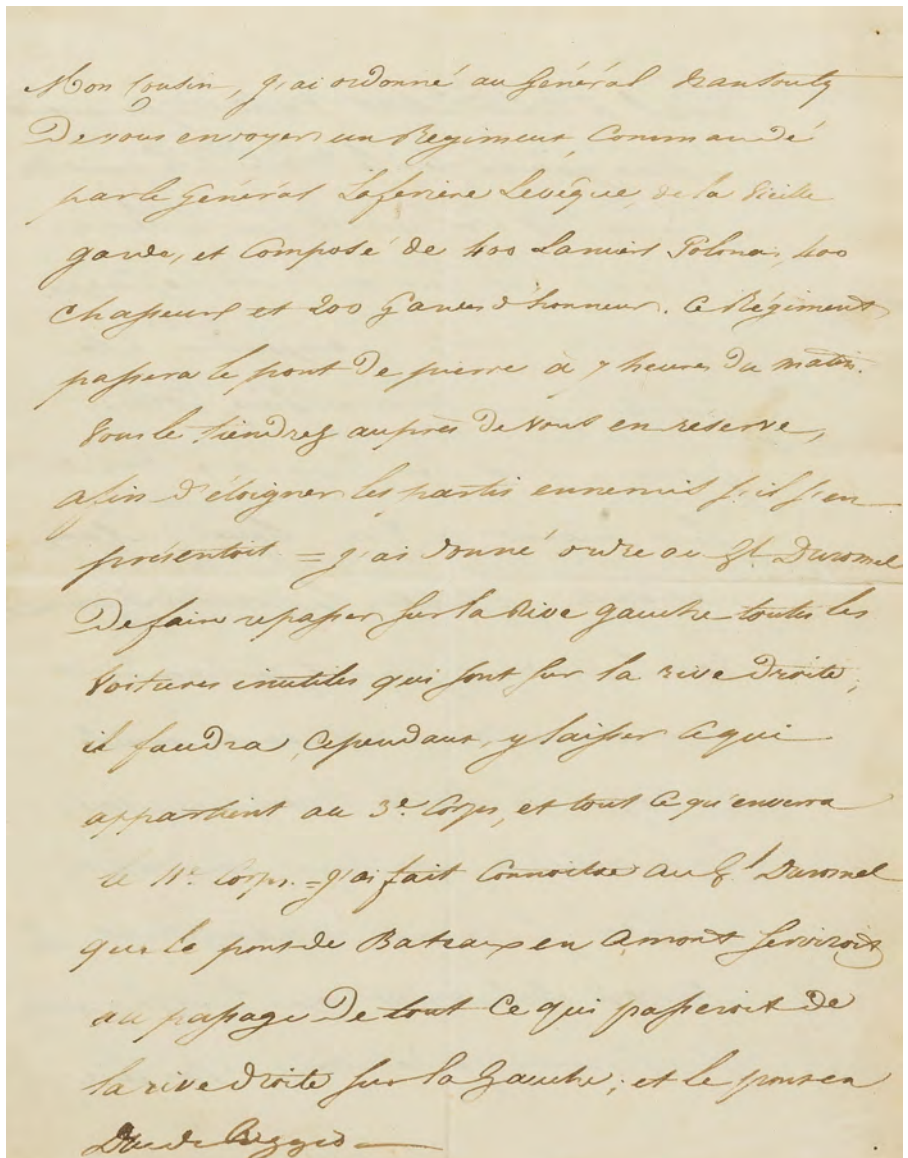 Mon Cousin, j'ai ordonné au Général Nansouty
De vous envoyer un Regiment, Commandé
par le Général Laferiere Levêque, de la Vieille
garde, et Composé de 400 Lanciers Polonais, 400
Chasseurs et 200 Gardes d'honneur. Ce Régiment
passera le pont De pierre à 7 heures Du matin.
Vous le tiendrez auprès De vous en réserve,
afin d'éloigner les partis ennemis s'il s'en
présentoit = j'ai donné ordre au Gl. Durosnel
De faire repasser sur la Rive gauche toutes les
Voitures inutiles qui sont sur la rive Droite;
il faudra, Cependant, y laisser Ce qui
appartient au 3e. Corps, et tout Ce qu'enverra
le 11e. Corps. = J'ai fait Connoitre au Gl Durosnel
que le pont de Bateaux en amont serviroit
au passage De tout Ce qui passeroit De
la rive droite sur la Gauche; et le pont en
Duc de Reggio